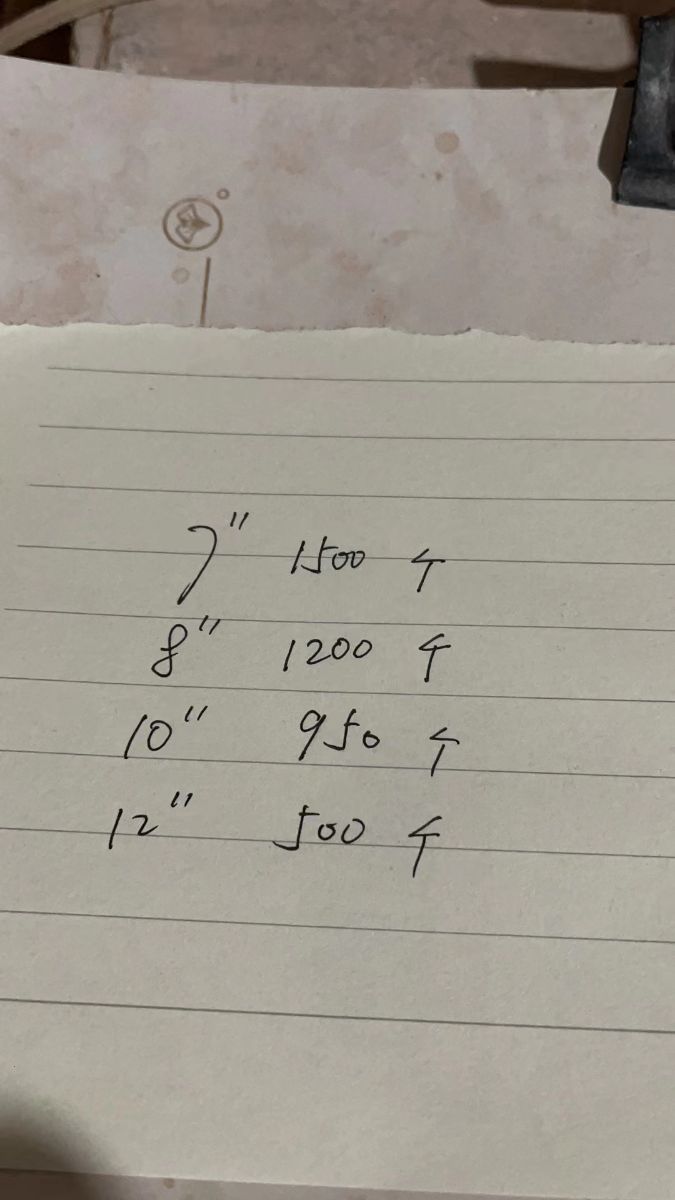 7" 1500 个
8" 1200 个
10" 950 个
12" 500 个